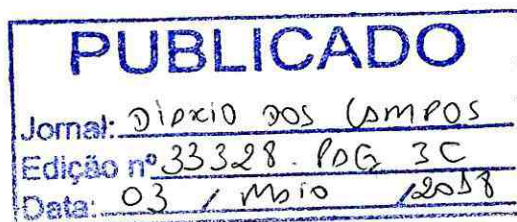 PUBLICADO
Jornal: DIÁRIO DOS CAMPOS
Edição nº 33328. PAG 3C
Data: 03 / Maio /2018